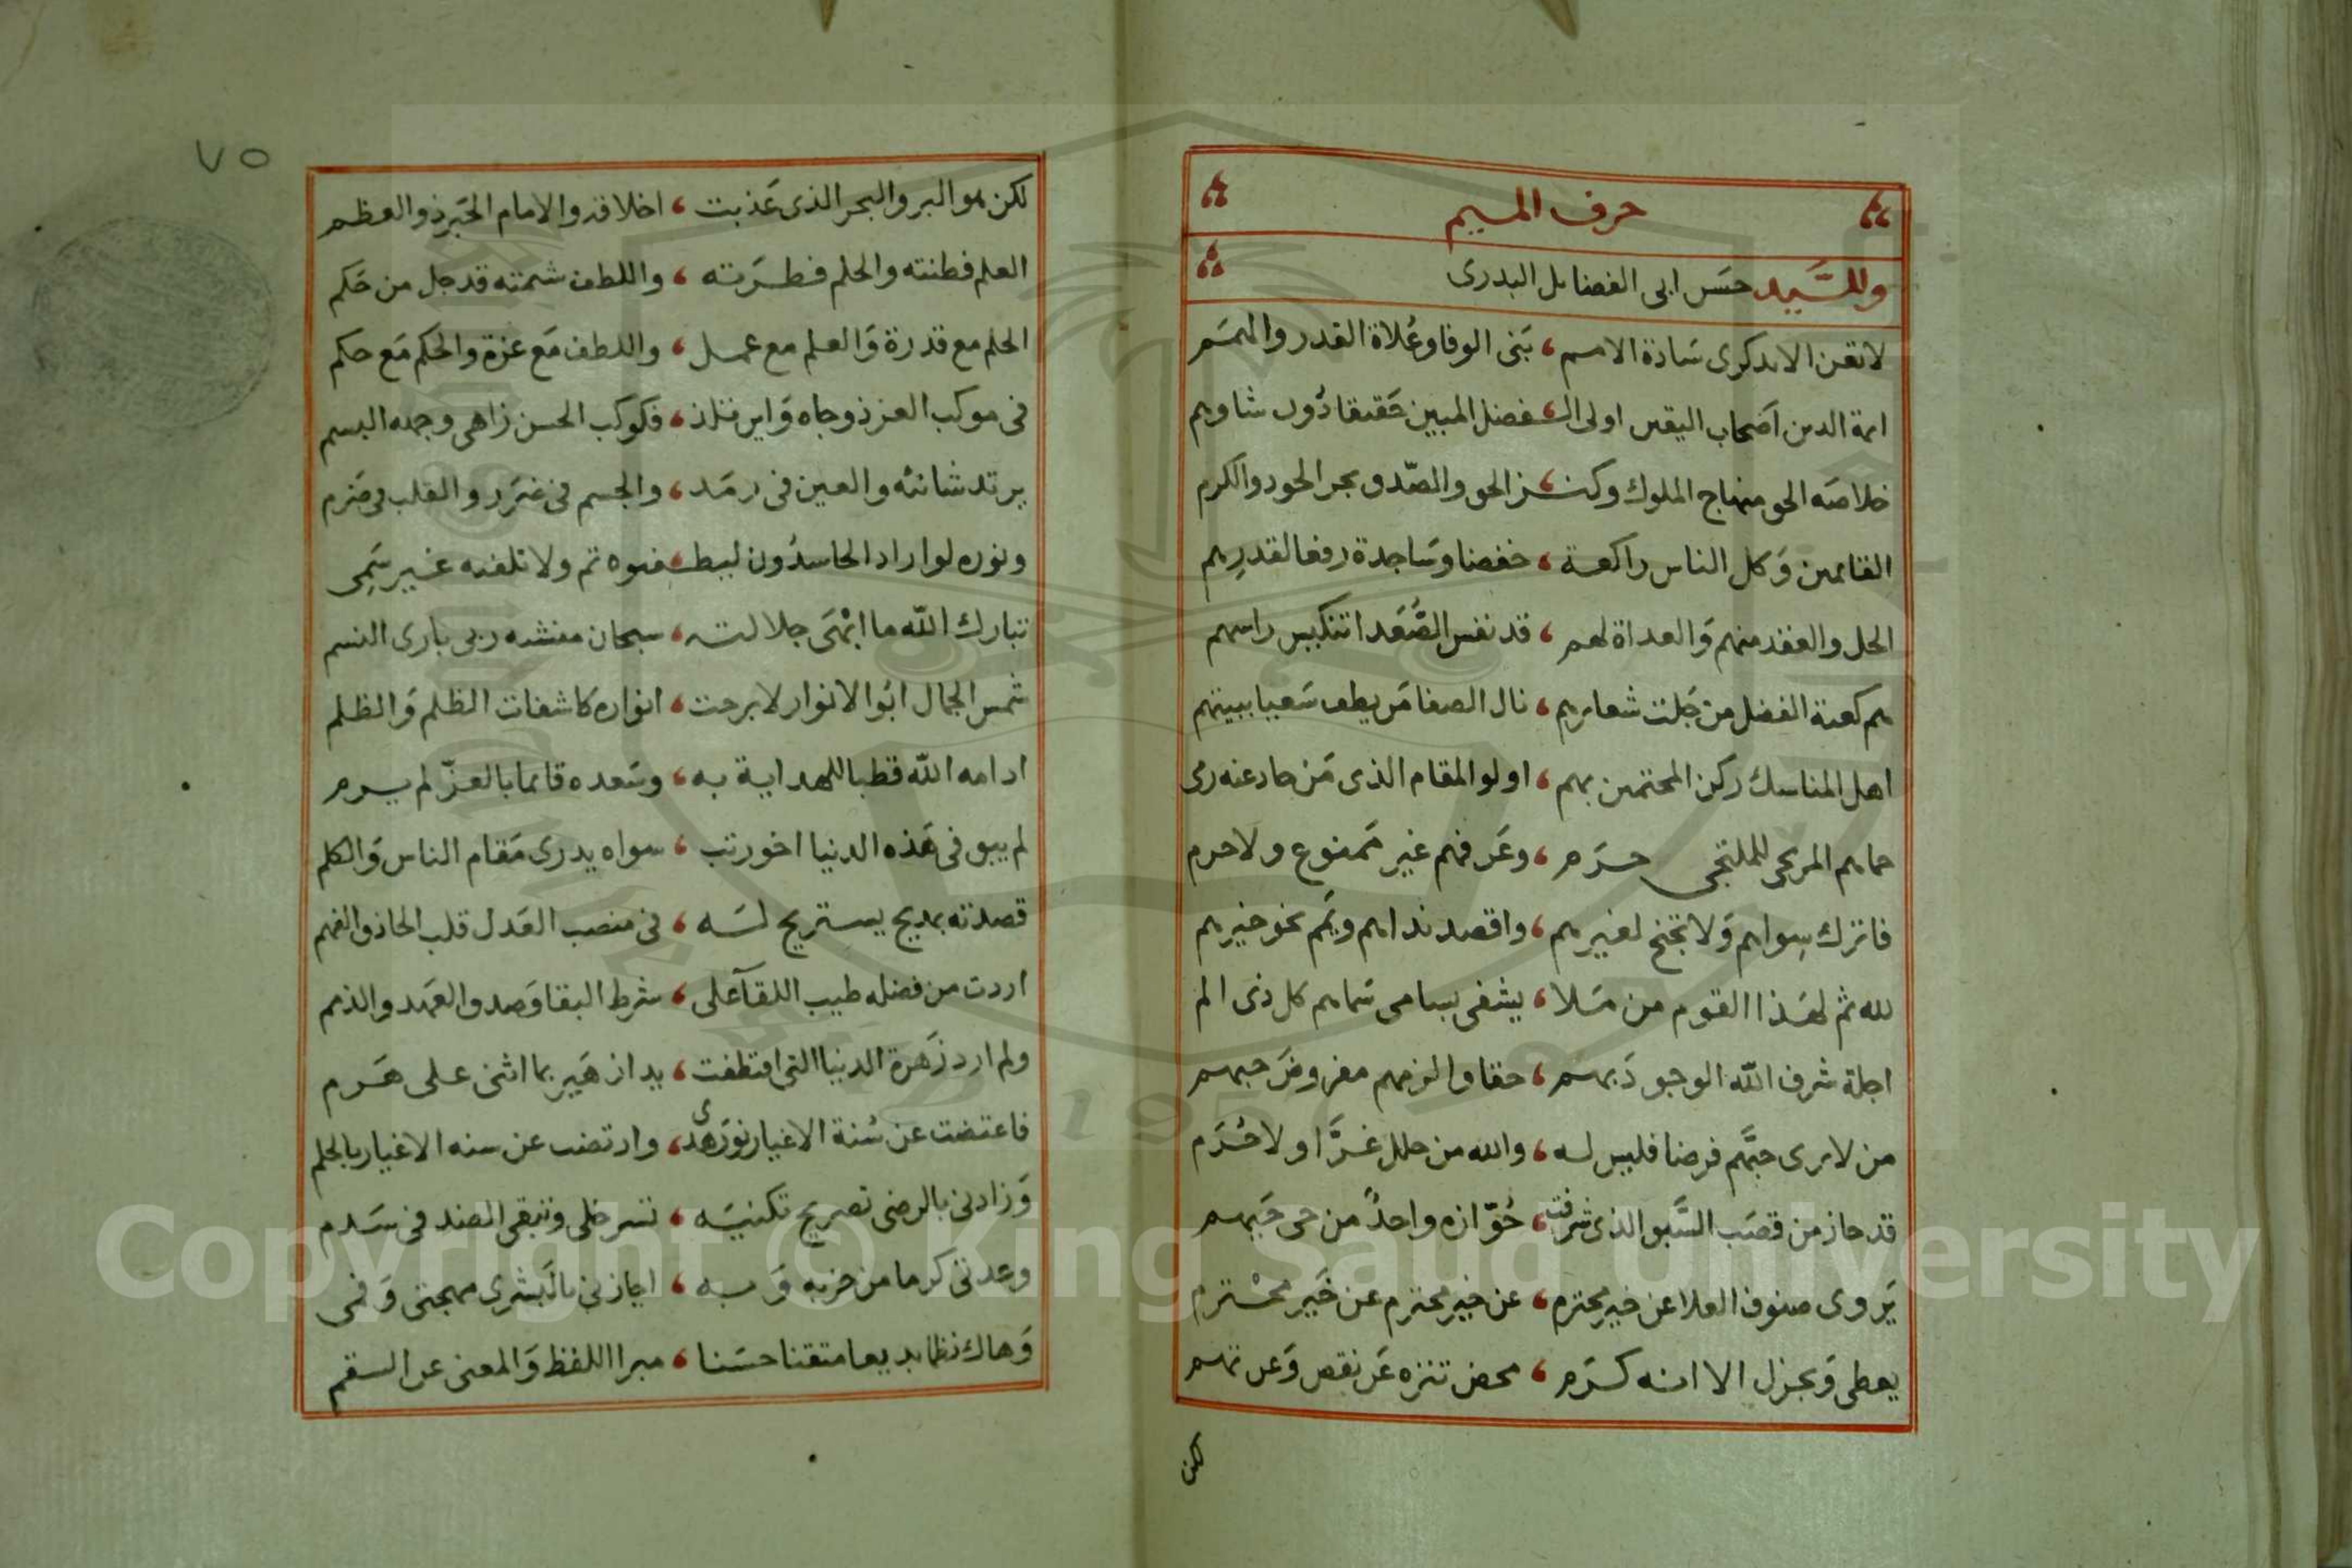 حرف الميم
وللسَّيد حسَن ابى الفضايل البدرى
لا تقرن الا بذكرى سَادة الامم ، بَنى الوفا وعُلاة القدر والهمَم
ايمة الدين اَصحاب اليقين اولى الـ ، ـفضل المبين حَقيقا دُون شاوهم
خلاصَه الحق منهاج الملوك وكنـ ، ـز الحق والصّدق بحر الجود والكرم
القايمين وَكل الناس راكعة ، خفضا وسَاجدة رفعا لقدرِهم
الحل والعقد منهم وَالعداة لهم ، قد نفس الصُّعَدا تنكيس راسهم
هم كعبة الفضل من جَلت شعايرهم ، نال الصفا مَن يطف سَعيا ببيتهم
اهل المناسك ركن المحتمين بهم ، اولو المقام الذى مَن حاد عنه رمى
حماهم المرتجى للملتجى حرَم ، وعَرفهم غير مَمنوع ولا حرم
فاترك سِواهم وَلا تجنح لغيرهم ، واقصد نداهم ويَمم نحو خيرهم
لله ثم لهَذا القوم من مَـلا ، يشفى بسامى سَماهم كل ذى الم
اجلة شرف الله الوجود بهم ، حقا والزمهم مفروضَ حبهم
من لا يرى حبَّهم فرضا فليس له ، والله من حلل غـرَّا ولا حُرَم
قد حاز من قصَب السَّبق الذى شرفت ، حُوّازه واحدٌ من حى حَيهم
يَروى صنوف العلا عن خير محترم ، عن خير محترم عن خَير محْترم
يعطى وَيجزل الا انه كرَم ، محض تنزه عَن نقص وَعن تهم
لكن
٧٥
لكن هو البر والبحر الذى عَذبت ، اخلاقه والامام الحَبر ذو العظم
العلم فطنته والحلم فطرَته ، واللطف شمته قد جل من حَكم
الحلم مع قدرة وَالعلم مع عمل ، واللطف مَع عزة والحكم مَع حكم
فى موكب العز ذو جاه وَاين تلذ ، فكوكب الحسن زاهى وجهه البسم
يرتد شانئه والعين فى رمَد ، والجسم فى ضَرر والقلب فى ضَرم
ونوره لو اراد الحاسدُون ليطـ ، ـفئوه تم ولا تلفيه غير سَمِى
تبارك اللّه ما ابْهَى جلالته ، سبحان منشئه ربى بارى النسم
شمس الجمال ابُو الانوار لا برحت ، انواره كاشفات الظلم وَالظلم
ادامه اللّه قطبا للهداية به ، وسَعده قائما بالعزّ لم يرم
لم يبق فى هَذه الدنيا اخو رتب ، سواه يدرى مَقام الناس وَالكلم
قصدته بمديح يستريح لـه ، فى منصب العَدل قلب الحاذق الفهم
اردت من فضله طيب اللقآ على ، شرط البقا وَصدق العَهد والذمم
ولم ارد زَهرة الدنيا التى اقتطفت ، يدا زهَير بما اثنى على هَرم
فاعتضت عن سُنة الاغيار نورَ هدى ، وارتضت عن سنه الاغيار بالحلم
وَزادنى بالرضى تصريح تكنيَـه ، تسر خلى وتبقى الضد فى سَدم
وعدتنى كرما من حزبه وَبـه ، اجازنى بالبَشرى مهجتى وَفمى
وَهاك نظما بديعا متقنا حسَنا ، مبرا اللفظ وَالمعنى عن السقم
Copyright © King Saud University